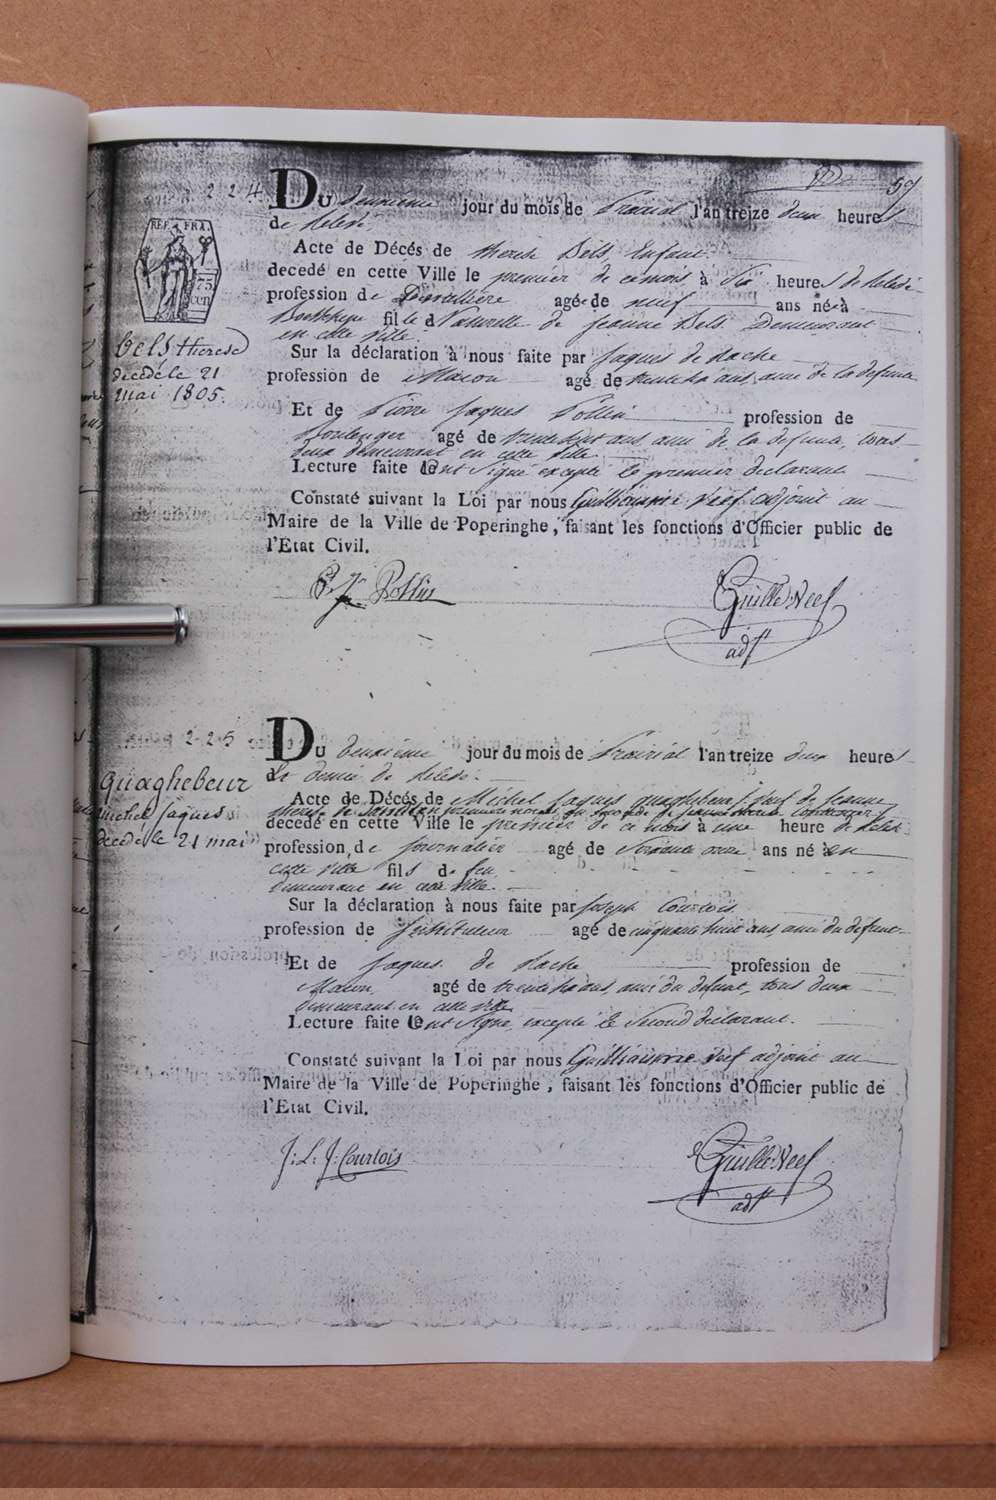 59
224
Du deuxième jour du mois de Prairial l'an treize deux heures
de relevé.
REP. FRA.
75
cen
Acte de Décés de therese Bels, Enfant
decedé en cette Ville le premier de ce mois à Six heures de relevé
profession de Dentellière agée de neuf ans née à
Boeschepe fille d Naturelle de Jeanne Bels Demeurant
en cette ville.
bels Therese
decédé le 21
mai 1805.
Sur la déclaration à nous faite par Jaques de Rache
profession de Macon agé de trente ans, ami de la defunte
Et de Pierre Jaques Pollin profession de
Boulenger agé de trente huit ans, ami de la defunte, tous
deux demeurant en cette ville.
Lecture faite ont Signé excepté le premier declarant
Constaté suivant la Loi par nous Guilliaume Neef adjoint au
Maire de la Ville de Poperinghe, faisant les fonctions d'Officier public de
l'Etat Civil.
P. J. Pollin
Guille: Neef
adjt
225
Du deuxième jour du mois de Prairial l'an treize deux heures
et demie de relevé.
quaghebeur
michel jaques
decédé le 21 mai
Acte de Décés de Michel Jaques quaghebeur, veuf de Jeanne
decedé en cette Ville le premier de ce mois à une heure de relevé
profession de journalier agé de Soixante onze ans né en
cette ville fils de feu
demeurant en cette ville.
Sur la déclaration à nous faite par Joseph Courtois
profession de Instituteur agé de cinquante huit ans, ami du defunt
Et de Jaques de Rache profession de
Macon, agé de trente ans, ami du defunt, tous deux
demeurant en cette ville
Lecture faite ont Signé, excepté le Second declarant.
Constaté suivant la Loi par nous Guilliaume Neef adjoint au
Maire de la Ville de Poperinghe, faisant les fonctions d'Officier public de
l'Etat Civil.
J: L: J: Courtois
Guille: Neef
adjt